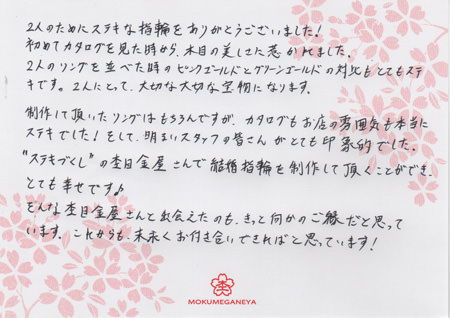 2人のためにステキな指輪をありがとうございました!
初めてカタログを見た時から、木目の美しさに惹かれてました。
2人のリングを並べた時のピンクゴールドとグリーンゴールドの対比もとてもステ
キです。2人にとって、大切な大切な宝物になります。
制作して頂いたリングはもちろんですが、カタログもお店の雰囲気も本当に
ステキでした!そして、明るいスタッフの皆さんがとても印象的でした。
"ステキづくし"の杢目金屋さんで結婚指輪を制作して頂くことができ、
とても幸せです♪
そんな杢目金屋さんと出会えたのも、きっと何かのご縁だと思って
います。これからも、末永くお付き合いできればと思っています!
杢
MOKUMEGANEYA